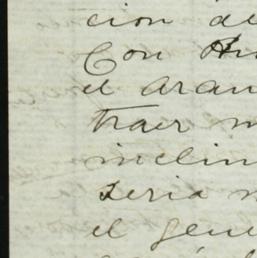 cion de
Con
el aran
traer m
inclin
seria n
el gene